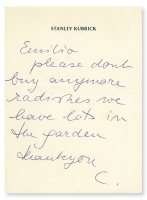 STANLEY KUBRICK
Emilio
please dont
buy anymore
radishes we
have lots in
the garden
thankyou
C.